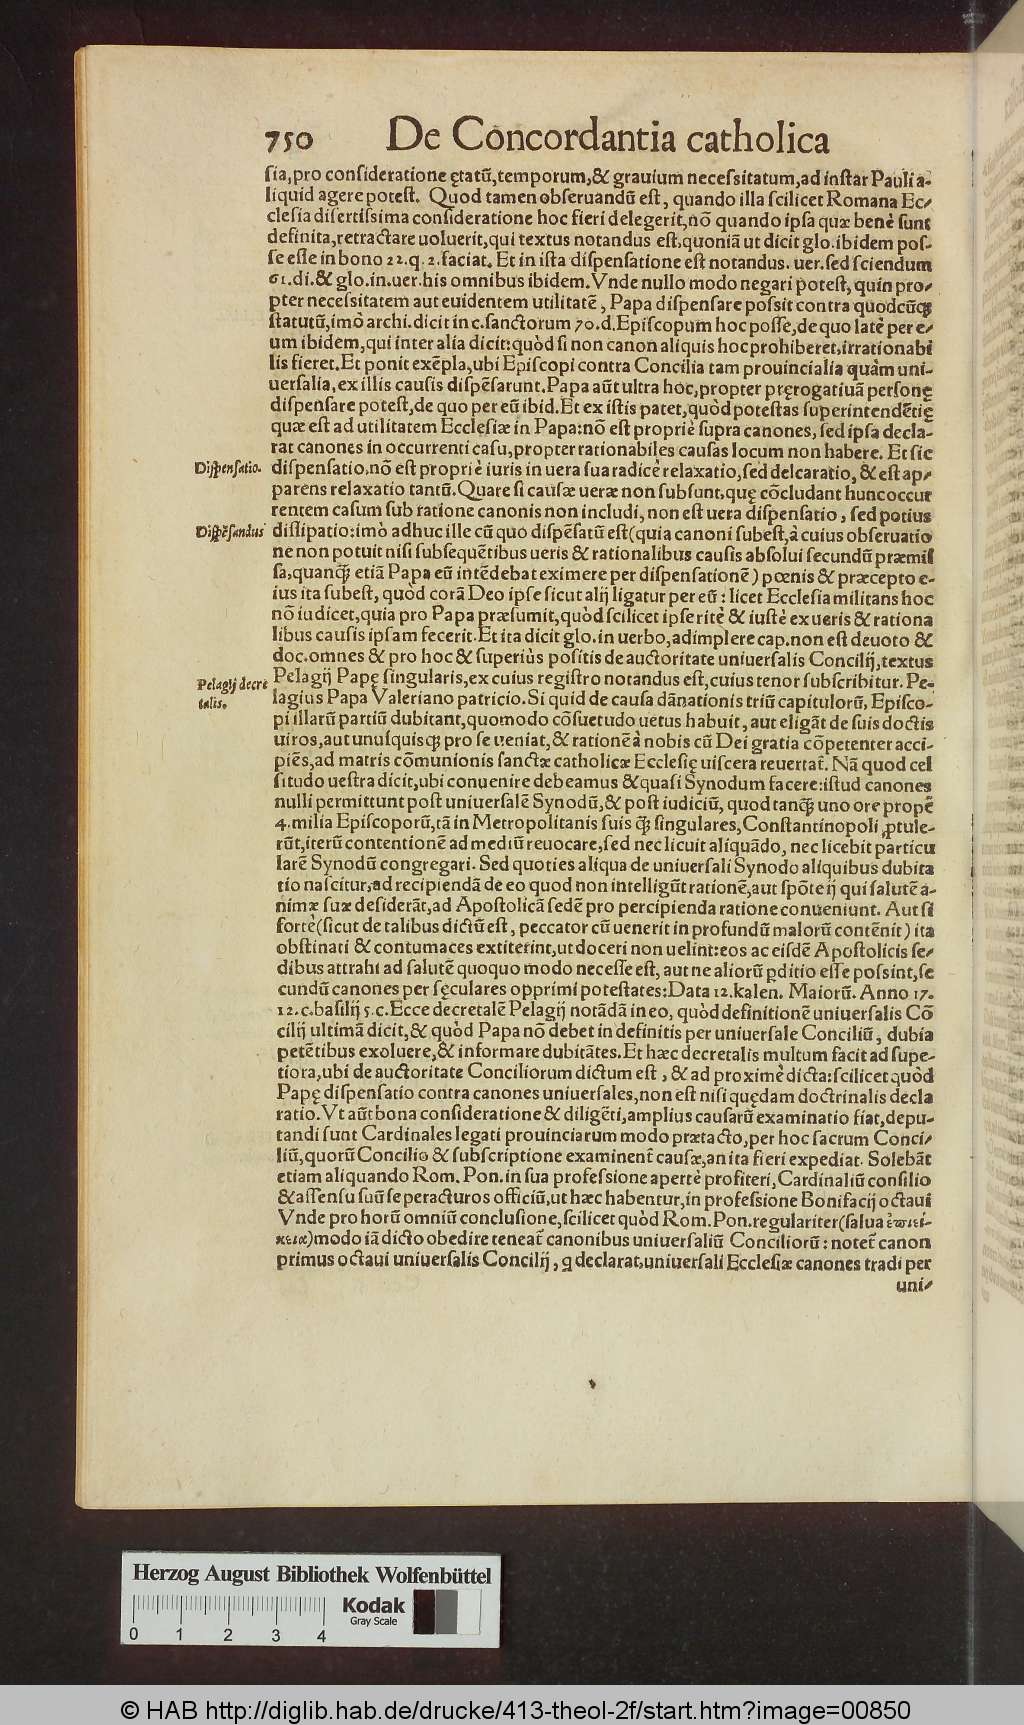 750 De Concordantia catholica
ſia, pro conſideratione ętatū, temporum, & grauium neceſsitatum, ad inſtar Pauli a-
liquid agere poteſt. Quod tamen obſeruandū eſt, quando illa ſcilicet Romana Ec-
cleſia diſertiſsima conſideratione hoc fieri delegerit, nō quando ipſa quæ benè ſunt
definita, retractare uoluerit, qui textus notandus eſt, quoniā ut dicit glo. ibidem poſ-
ſe eſſe in bono 22. q. 2. faciat. Et in iſta diſpenſatione eſt notandus. uer. ſed ſciendum
61. di. & glo. in. uer. his omnibus ibidem. Vnde nullo modo negari poteſt, quin pro-
pter neceſsitatem aut euidentem utilitatē, Papa diſpenſare poſsit contra quodcūq;
ſtatutū, imò archi. dicit in c. ſanctorum 70. d. Epiſcopum hoc poſſe, de quo latè per e-
um ibidem, qui inter alia dicit: quòd ſi non canon aliquis hoc prohiberet, irrationabi
lis fieret. Et ponit exēpla, ubi Epiſcopi contra Concilia tam prouincialia quàm uni-
uerſalia, ex illis cauſis diſpēſarunt. Papa aūt ultra hoc, propter pręrogatiuā perſonę
diſpenſare poteſt, de quo per eū ibid. Et ex iſtis patet, quòd poteſtas ſuperintendētię
quæ eſt ad utilitatem Eccleſiæ in Papa: nō eſt propriè ſupra canones, ſed ipſa decla-
rat canones in occurrenti caſu, propter rationabiles cauſas locum non habere. Et ſic
Diſpenſatio. diſpenſatio, nō eſt propriè iuris in uera ſua radice relaxatio, ſed delcaratio, & eſt ap-
parens relaxatio tantū. Quare ſi cauſæ ueræ non ſubſunt, quę cōcludant hunc occur
rentem caſum ſub ratione canonis non includi, non eſt uera diſpenſatio, ſed potius
Diſpēſandus diſsipatio: imò adhuc ille cū quo diſpēſatū eſt (quia canoni ſubeſt, à cuius obſeruatio
ne non potuit niſi ſubſequētibus ueris & rationalibus cauſis abſolui ſecundū præmiſ
ſa, quanq̃ etiā Papa eū intēdebat eximere per diſpenſationē) pœnis & præcepto e-
ius ita ſubeſt, quòd corā Deo ipſe ſicut alij ligatur per eū: licet Eccleſia militans hoc
nō iudicet, quia pro Papa præſumit, quòd ſcilicet ipſe ritè & iuſtè ex ueris & rationa
libus cauſis ipſam fecerit. Et ita dicit glo. in uerbo, adimplere cap. non eſt deuoto &
doc. omnes & pro hoc & ſuperiùs poſitis de auctoritate uniuerſalis Concilij, textus
Pelagij decre Pelagij Papę ſingularis, ex cuius regiſtro notandus eſt, cuius tenor ſubſcribitur. Pe-
talis. lagius Papa Valeriano patricio. Si quid de cauſa dānationis triū capitulorū, Epiſco-
pi illarū partiū dubitant, quomodo cōſuetudo uetus habuit, aut eligāt de ſuis doctis
uiros, aut unuſquiſq; pro ſe ueniat, & rationē à nobis cū Dei gratia cōpetenter acci-
piēs, ad matris cōmunionis ſanctæ catholicæ Eccleſię uiſcera reuertat̃. Nā quod cel
ſitudo ueſtra dicit, ubi conuenire debeamus & quaſi Synodum facere: iſtud canones
nulli permittunt poſt uniuerſalē Synodū, & poſt iudiciū, quod tanq̃ uno ore propè
4. milia Epiſcoporū, tā in Metropolitanis ſuis q̃ ſingulares, Conſtantinopoli ꝓtule-
rūt, iterū contentionē ad mediū reuocare, ſed nec licuit aliquādo, nec licebit particu
larē Synodū congregari. Sed quoties aliqua de uniuerſali Synodo aliquibus dubita
tio naſcitur, ad recipiendā de eo quod non intelligūt rationē, aut ſpōte ij qui ſalutē a-
nimæ ſuæ deſiderāt, ad Apoſtolicā ſedē pro percipienda ratione conueniunt. Aut ſi
fortè (ſicut de talibus dictū eſt, peccator cū uenerit in profundū malorū contēnit) ita
obſtinati & contumaces extiterint, ut doceri non uelint: eos ac eiſdē Apoſtolicis ſe-
dibus attrahi ad ſalutē quoquo modo neceſſe eſt, aut ne aliorū ꝑditio eſſe poſsint, ſe
cundū canones per ſęculares opprimi poteſtates: Data 12. kalen. Maiorū. Anno 17.
12. c. baſilij 5. c. Ecce decretalē Pelagij notādā in eo, quòd definitionē uniuerſalis Cō
cilij ultimā dicit, & quòd Papa nō debet in definitis per uniuerſale Conciliū, dubia
petētibus exoluere, & informare dubitātes. Et hæc decretalis multum facit ad ſupe-
riora, ubi de auctoritate Conciliorum dictum eſt, & ad proximè dicta: ſcilicet quòd
Papę diſpenſatio contra canones uniuerſales, non eſt niſi quędam doctrinalis decla
ratio. Vt aūt bona conſideratione & diligēti, amplius cauſarū examinatio fiat, depu-
tandi ſunt Cardinales legati prouinciarum modo prætacto, per hoc ſacrum Conci-
liū, quorū Concilio & ſubſcriptione examinent̃ cauſæ, an ita fieri expediat. Solebāt
etiam aliquando Rom. Pon. in ſua profeſsione apertè profiteri, Cardinaliū conſilio
& aſſenſu ſuū ſe peracturos officiū, ut hæc habentur, in profeſsione Bonifacij octaui
Vnde pro horū omniū concluſione, ſcilicet quòd Rom. Pon. regulariter (ſalua ἐπιεί-
κεια) modo iā dicto obedire teneat̃ canonibus uniuerſaliū Conciliorū: notet̃ canon
primus octaui uniuerſalis Concilij, q declarat, uniuerſali Eccleſiæ canones tradi per
uni-
Herzog August Bibliothek Wolfenbüttel
0 1 2 3 4
Kodak
Gray Scale
© HAB http://diglib.hab.de/drucke/413-theol-2f/start.htm?image=00850